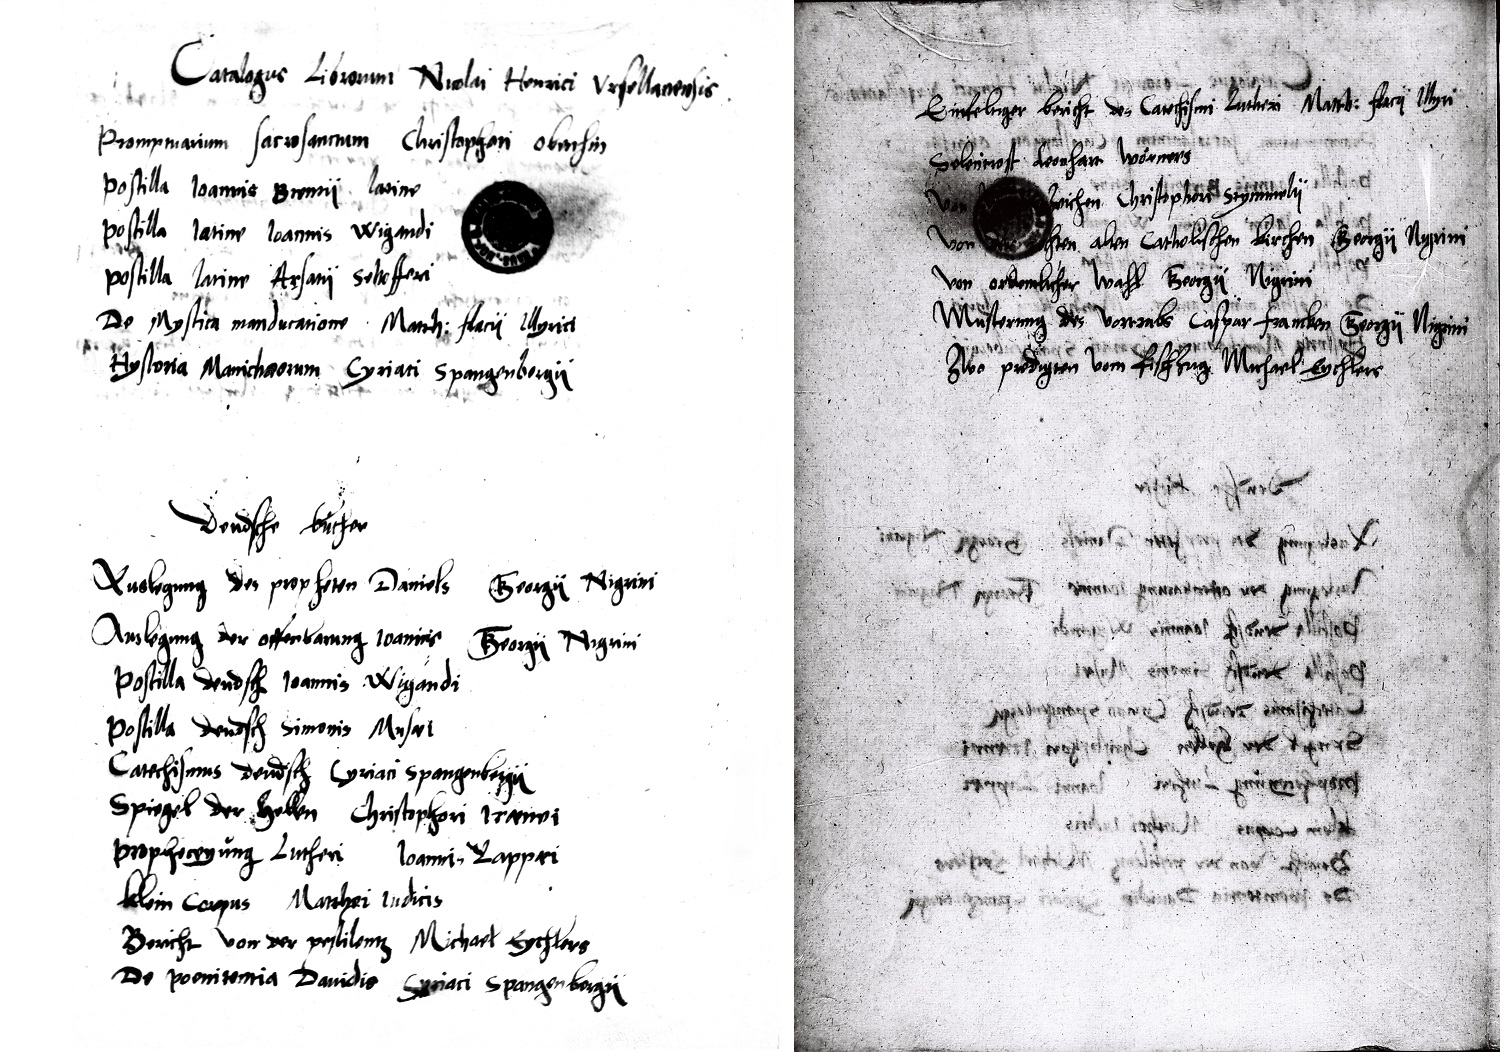 Catalogus Librorum Nicolai Henrici Vrsellanensis.
Promptuarium sacrosanctum Christophori
Postilla Ioannis Brentij latine
Postilla latine Ioannis Wigandi
Postilla latine Arsatij Schofferi
De Mystica manducatione Matth: flacij Illyrici
Hystoria Manichaeorum Cyriaci Spangenbergij
Deudsche bücher
Auslegung des propheten Daniels Georgij Nigrini
Auslegung der offenbarung Ioannis Georgij Nigrini
Postilla deudsch Ioannis Wigandi
Postilla deudsch Simonis Musaei
Catechismus deudsch Cyriaci Spangenbergij
Spiegel der Hellen Christophori Irenaei
Propheceyung Lutheri Ioannis Lappaei
klein Corpus Matthaei Iudicis
Bericht von der pestilentz Michael Eychlers
De poenitentia Dauidis Cyriaci Spangenbergij
bericht des Catechismi Lutheri Matth: flacij Illyri
Leonhart Wörners
Von Christophori Stymmelij
Von alten Catholischen Kirchen Georgij Nigrini
Von ordentlicher wahl Georgij Nigrini
Musterung des vortrabs Caspar francken Georgij Nigrini
Zwo predigten vom fischzug Michael Eychlers